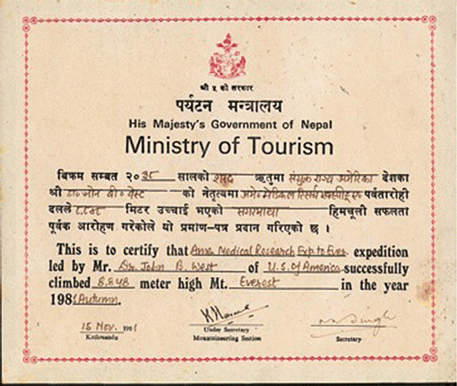 श्री ५ को सरकार
पर्यटन मन्त्रालय
His Majesty's Government of Nepal
Ministry of Tourism
विक्रम सम्बत २०३८ सालको शरद ऋतुमा संयुक्त राज्य अमेरिका देशका
श्री डा. जोन बी. वेस्ट को नेतृत्वमा पर्वतारोही
दलले ८,८४८ मिटर उच्चाई भएको सगरमाथा हिमचूली सफलता
पूर्वक आरोहण गरेकोले यो प्रमाण-पत्र प्रदान गरिएको छ ।
This is to certify that Amer Medical Research Exp. to Ever. expedition
led by Mr. Dr. John B. West of U.S. of America successfully
climbed 8,848 meter high Mt. Everest in the year
1981 Autumn.
15 Nov. 1981
Kathmandu
Under Secretary
Mountaineering Section
Secretary